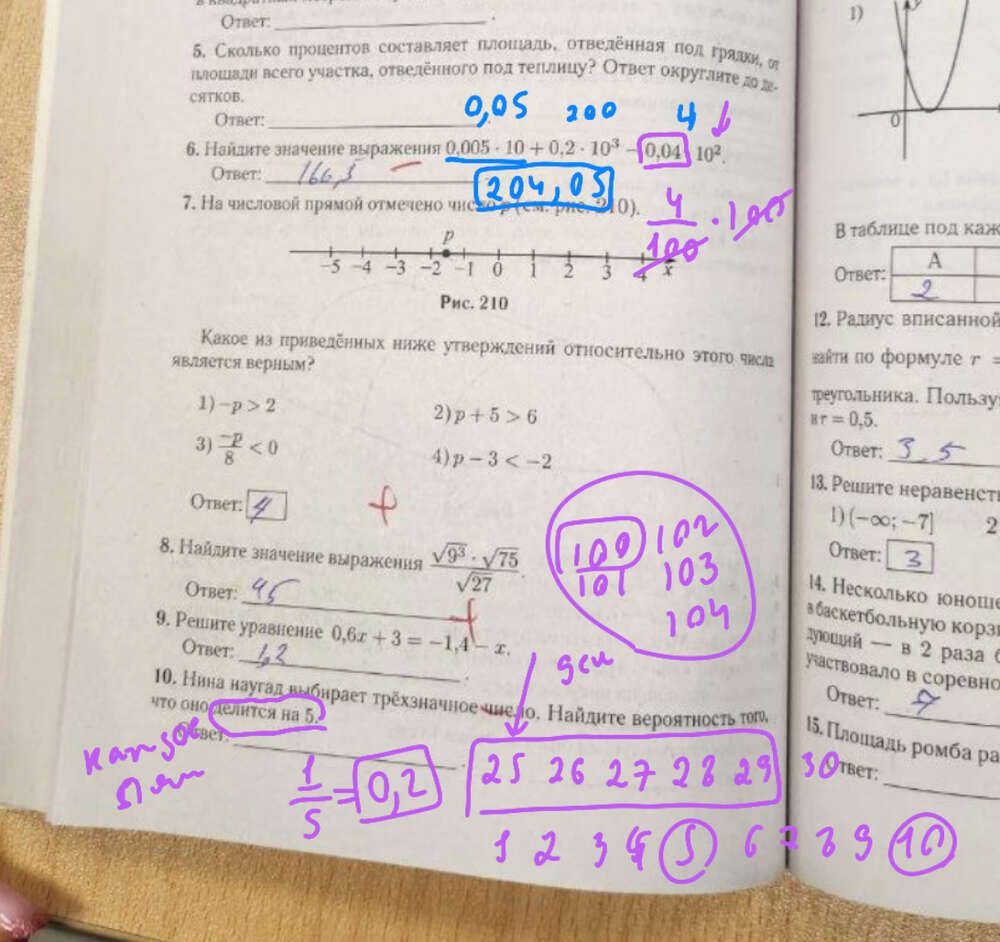 Ответ:
5. Сколько процентов составляет площадь, отведённая под грядки, от
площади всего участка, отведённого под теплицу? Ответ округлите до де-
сятков.
Ответ:
0,05 200 4
6. Найдите значение выражения 0,005 · 10 + 0,2 · 10³ − 0,04 · 10².
Ответ: 166,3
204,05
7. На числовой прямой отмечено число p (см. рис. 210).
4/100 · 100
p
−5 −4 −3 −2 −1 0 1 2 3 4 x
Рис. 210
Какое из приведённых ниже утверждений относительно этого числа
является верным?
1) −p > 2
2) p + 5 > 6
3) −p/8 < 0
4) p − 3 < −2
Ответ: 4
8. Найдите значение выражения √9³ · √75 / √27.
Ответ: 45
100 102
101 103
104
9. Решите уравнение 0,6x + 3 = −1,4 − x.
Ответ: 1,2
10. Нина наугад выбирает трёхзначное число. Найдите вероятность того,
что оно делится на 5.
Ответ:
каждое
1/5 = 0,2
25 26 27 28 29 30
1 2 3 4 5 6 7 8 9 10
1)
y
0
В таблице под каж
Ответ:
А
2
12. Радиус вписанной
найти по формуле r =
треугольника. Пользу
и r = 0,5.
Ответ: 3.5
13. Решите неравенст
1) (−∞; −7]
2
Ответ: 3
14. Несколько юноше
в баскетбольную корз
дующий — в 2 раза б
участвовало в соревно
Ответ:
15. Площадь ромба ра
Ответ: